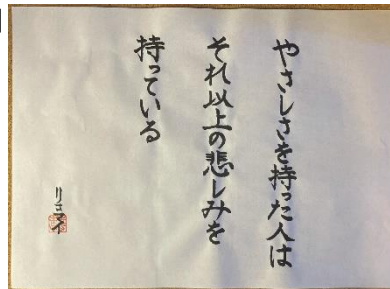 やさしさを持った人は
それ以上の悲しみを
持っている